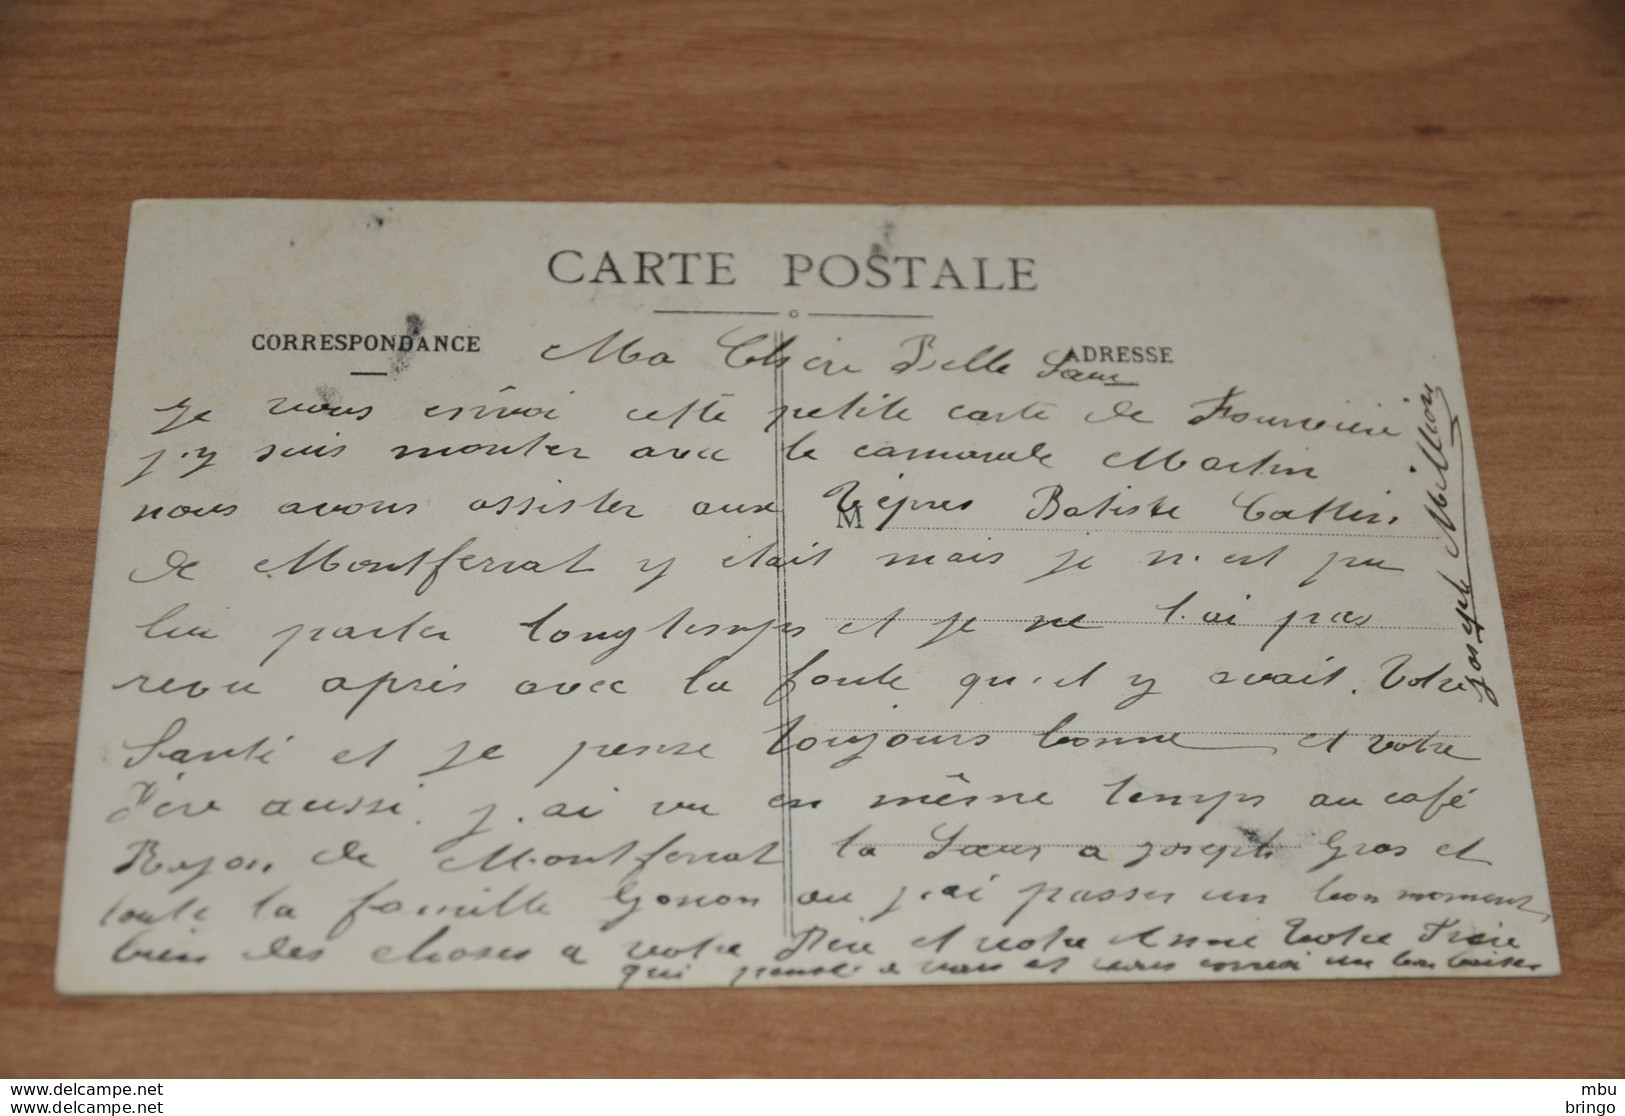 CARTE POSTALE
CORRESPONDANCE
ADRESSE
Ma Chère Belle Sœur
Je vous envoi cette petite carte de Fourvière
j'y suis monter avec le camarade Martin
nous avons assister aux Vêpres Batiste Cattin
M
de Montferrat y était mais je n'est pu
lui parler longtemps et je ne l'ai pas
revu après avec la foule qu'il y avait. Votre
Santé et je pense toujours bonne et votre
Père aussi. j'ai vu en même temps au café
Rejon de Montferrat la Sœur a joseph Gros et
toute la famille Gonon ou j'ai passer un bon moment
bien des choses a votre Père et votre Votre Frère
qui pense a vous et vous envoi un bon baiser
Joseph Million
www.delcampe.net
www.delcampe.net
mbu
bringo